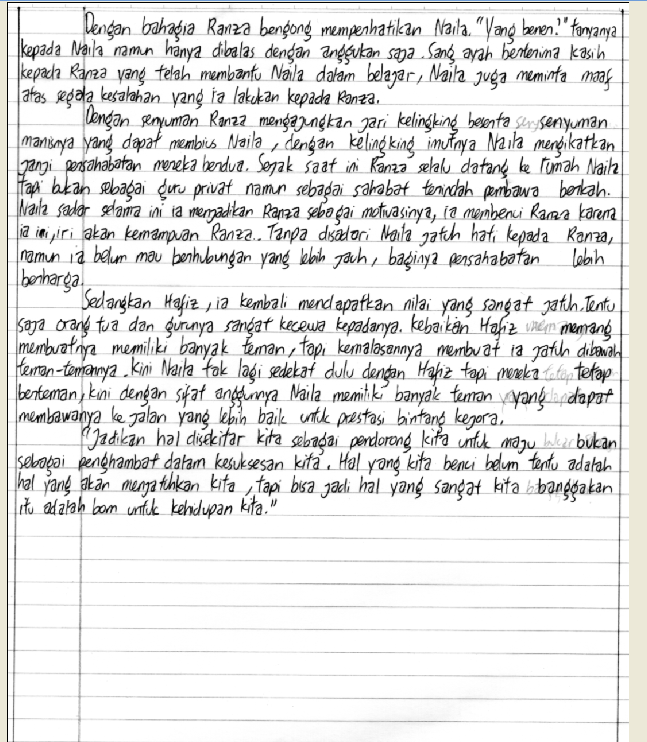 Dengan bahagia Ranza bengong memperhatikan Naila. "Yang bener?" tanyanya
kepada Naila namun hanya dibalas dengan anggukan saja. Sang ayah berterima kasih
kepada Ranza yang telah membantu Naila dalam belajar, Naila juga meminta maaf
atas segala kesalahan yang ia lakukan kepada Ranza.
Dengan senyuman Ranza mengajungkan jari kelingking beserta senyuman
manisnya yang dapat membius Naila, dengan kelingking imutnya Naila mengikatkan
janji persahabatan mereka berdua. Sejak saat ini Ranza selalu datang ke rumah Naila
tapi bukan sebagai guru privat namun sebagai sahabat terindah pembawa berkah.
Naila sadar selama ini ia menjadikan Ranza sebagai motivasinya, ia membenci Ranza karena
ia iri, iri akan kemampuan Ranza.. Tanpa disadari Naila jatuh hati kepada Ranza,
namun ia belum mau berhubungan yang lebih jauh, baginya persahabatan lebih
berharga.
Sedangkan Hafiz, ia kembali mendapatkan nilai yang sangat jatuh. Tentu
saja orang tua dan gurunya sangat kecewa kepadanya. Kebaikan Hafiz memang
membuatnya memiliki banyak teman, tapi kemalasannya membuat ia jatuh dibawah
teman-temannya. Kini Naila tak lagi sedekat dulu dengan Hafiz tapi mereka tetap
berteman, kini dengan sifat anggunnya Naila memiliki banyak teman yang dapat
membawanya ke jalan yang lebih baik untuk prestasi bintang kejora.
"Jadikan hal disekitar kita sebagai pendorong kita untuk maju bukan
sebagai penghambat dalam kesuksesan kita. Hal yang kita benci belum tentu adalah
hal yang akan menjatuhkan kita, tapi bisa jadi hal yang sangat kita banggakan
itu adalah bom untuk kehidupan kita."